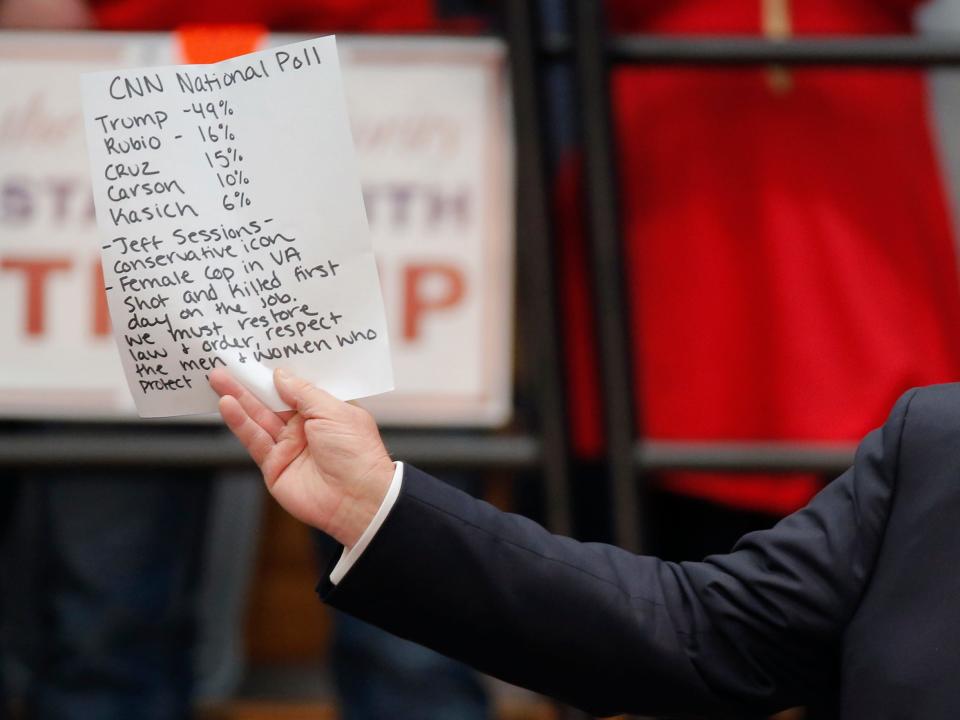 CNN National Poll
Trump - 49%
Rubio - 16%
Cruz 15%
Carson 10%
Kasich 6%
- Jeff Sessions -
conservative icon
- Female cop in VA
shot and killed first
day on the job.
we must restore
law & order, respect
the men & women who
protect
the
ority
STA ITH
T P